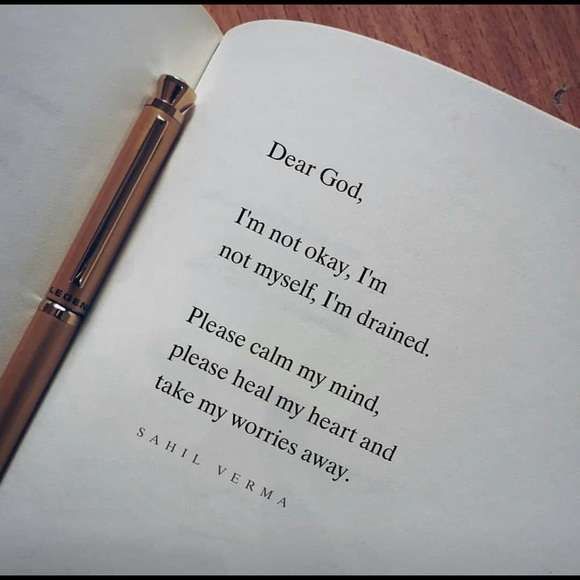 Dear God,
I'm not okay, I'm
not myself, I'm drained.
Please calm my mind,
please heal my heart and
take my worries away.
SAHIL VERMA
LEGEN